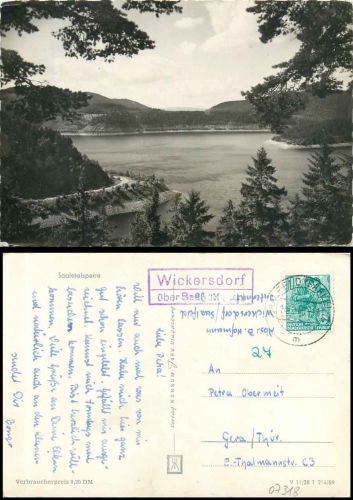 Saaletalsperre
Wickersdorf
über Saalf
Abs. B. Hofmann
Wickersdorf Saalfeld
Internat
24
DEUTSCHE
DEMOKRATISCHE REPUBLIK
An
Petra Obermeit
Gera/Thür.
E.-Thälmannstr. 63
Liebe Petra!
Will nur auch mal was von mir
hören lassen. Habe mich hier ganz
gut schon eingelebt, gefällt mir ausge-
zeichnet. Kommst mich Sonntags mal
besuchen kommen. Bist herzlich will-
kommen. Viele Grüße an Deine Eltern
und natürlich auch an den kleinen
sendet Dir
Verbraucherpreis 0,20 DM
V 11/28 T 214/59
07318